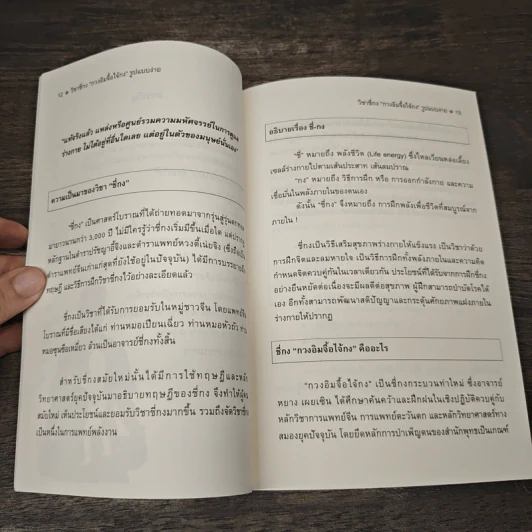 12 ● วิชาชี่กง "กวงอิมจื้อไจ้กง" รูปแบบง่าย
"แท้จริงแล้ว แหล่งหรือศูนย์รวมความมหัศจรรย์ในการดูแล
ร่างกาย ไม่ได้อยู่ที่อื่นใดเลย แต่อยู่ในตัวของมนุษย์นั่นเอง"
ความเป็นมาของวิชา "ชี่กง"
"ชี่กง" เป็นศาสตร์โบราณที่ได้ถ่ายทอดมาจากรุ่นสู่รุ่น
มายาวนานกว่า 3,000 ปี ไม่มีใครรู้ว่าชี่กงเริ่มมีขึ้นเมื่อใด แต่
หลักฐานในตำราปรัชญาอี้จิงและตำราแพทย์หวงตี้เน่ยจิง
ตำราแพทย์จีนเก่าแก่สุดที่ยังใช้อยู่ในปัจจุบัน) ได้มีการ
ทฤษฎี และวิธีการฝึกวิชาชี่กงไว้อย่างละเอียดแล้ว
ชี่กงเป็นวิชาที่ได้รับการยอมรับในหมู่ชาวจีน โดยแพทย์จีน
โบราณที่มีชื่อเสียงได้แก่ ท่านหมอเปียนเฉี่ยว ท่านหมอหัวถัว
หมอซุนซือเหมี่ยว ล้วนเป็นอาจารย์ชี่กงทั้งสิ้น
สำหรับชี่กงสมัยใหม่นั้นได้มีการใช้ทฤษฎีและหลัก
วิทยาศาสตร์ยุคปัจจุบันมาอธิบายทฤษฎีของชี่กง จึงทำให้ผู้คน
สมัยใหม่ เห็นประโยชน์และยอมรับวิชาชี่กงมากขึ้น รวมถึงจัดวิชาชี่กง
เป็นหนึ่งในการแพทย์พลังงาน
วิชาชี่กง "กวงอิมจื้อไจ้กง" รูปแบบง่าย ●
อธิบายเรื่อง ชี่-กง
"ชี่" หมายถึง พลังชีวิต (Life energy) ซึ่งไหลเวียนหล่อเลี้ยง
เซลล์ร่างกายไปตามเส้นประสาท เส้นลมปราณ
"กง" หมายถึง วิธีการฝึก หรือ การออกกำลังกาย และความ
เชื่อมั่นในพลังภายในของตนเอง
ดังนั้น "ชี่กง" จึงหมายถึง การฝึกพลังเพื่อชีวิตที่สมบูรณ์จาก
ภายใน !
ชี่กงเป็นวิธีเสริมสุขภาพร่างกายให้แข็งแรง เป็นวิชาว่าด้วย
การฝึกจิตและลมหายใจ ซึ่งเป็นวิธีการฝึกทั้งพลังภายในและความคิด
กำหนดจิตควบคู่กันในเวลาเดียวกัน ประโยชน์ที่ได้รับจากการฝึกชี่กง
อย่างถึงหยัดต่อเนื่องจะมีผลดีต่อสุขภาพ ผู้ฝึกสามารถบำบัดโรคได้
เอง อีกทั้งสามารถพัฒนาสติปัญญาและกระตุ้นศักยภาพแฝงภายใน
ร่างกายให้ปรากฏ
ชี่กง "กวงอิมจื้อไจ้กง" คืออะไร
"กวงอิมจื้อไจ้กง" เป็นชี่กงกระบวนท่าใหม่ ซึ่งอาจารย์
หยาง เผยเซิน ได้ศึกษาค้นคว้าและฝึกฝนในเชิงปฏิบัติควบคู่กับ
หลักวิชาการแพทย์จีน การแพทย์ตะวันตก และหลักวิทยาศาสตร์ทาง
สมองยุคปัจจุบัน โดยยึดหลักการบำเพ็ญตนของสำนักพุทธเป็นเกณฑ์